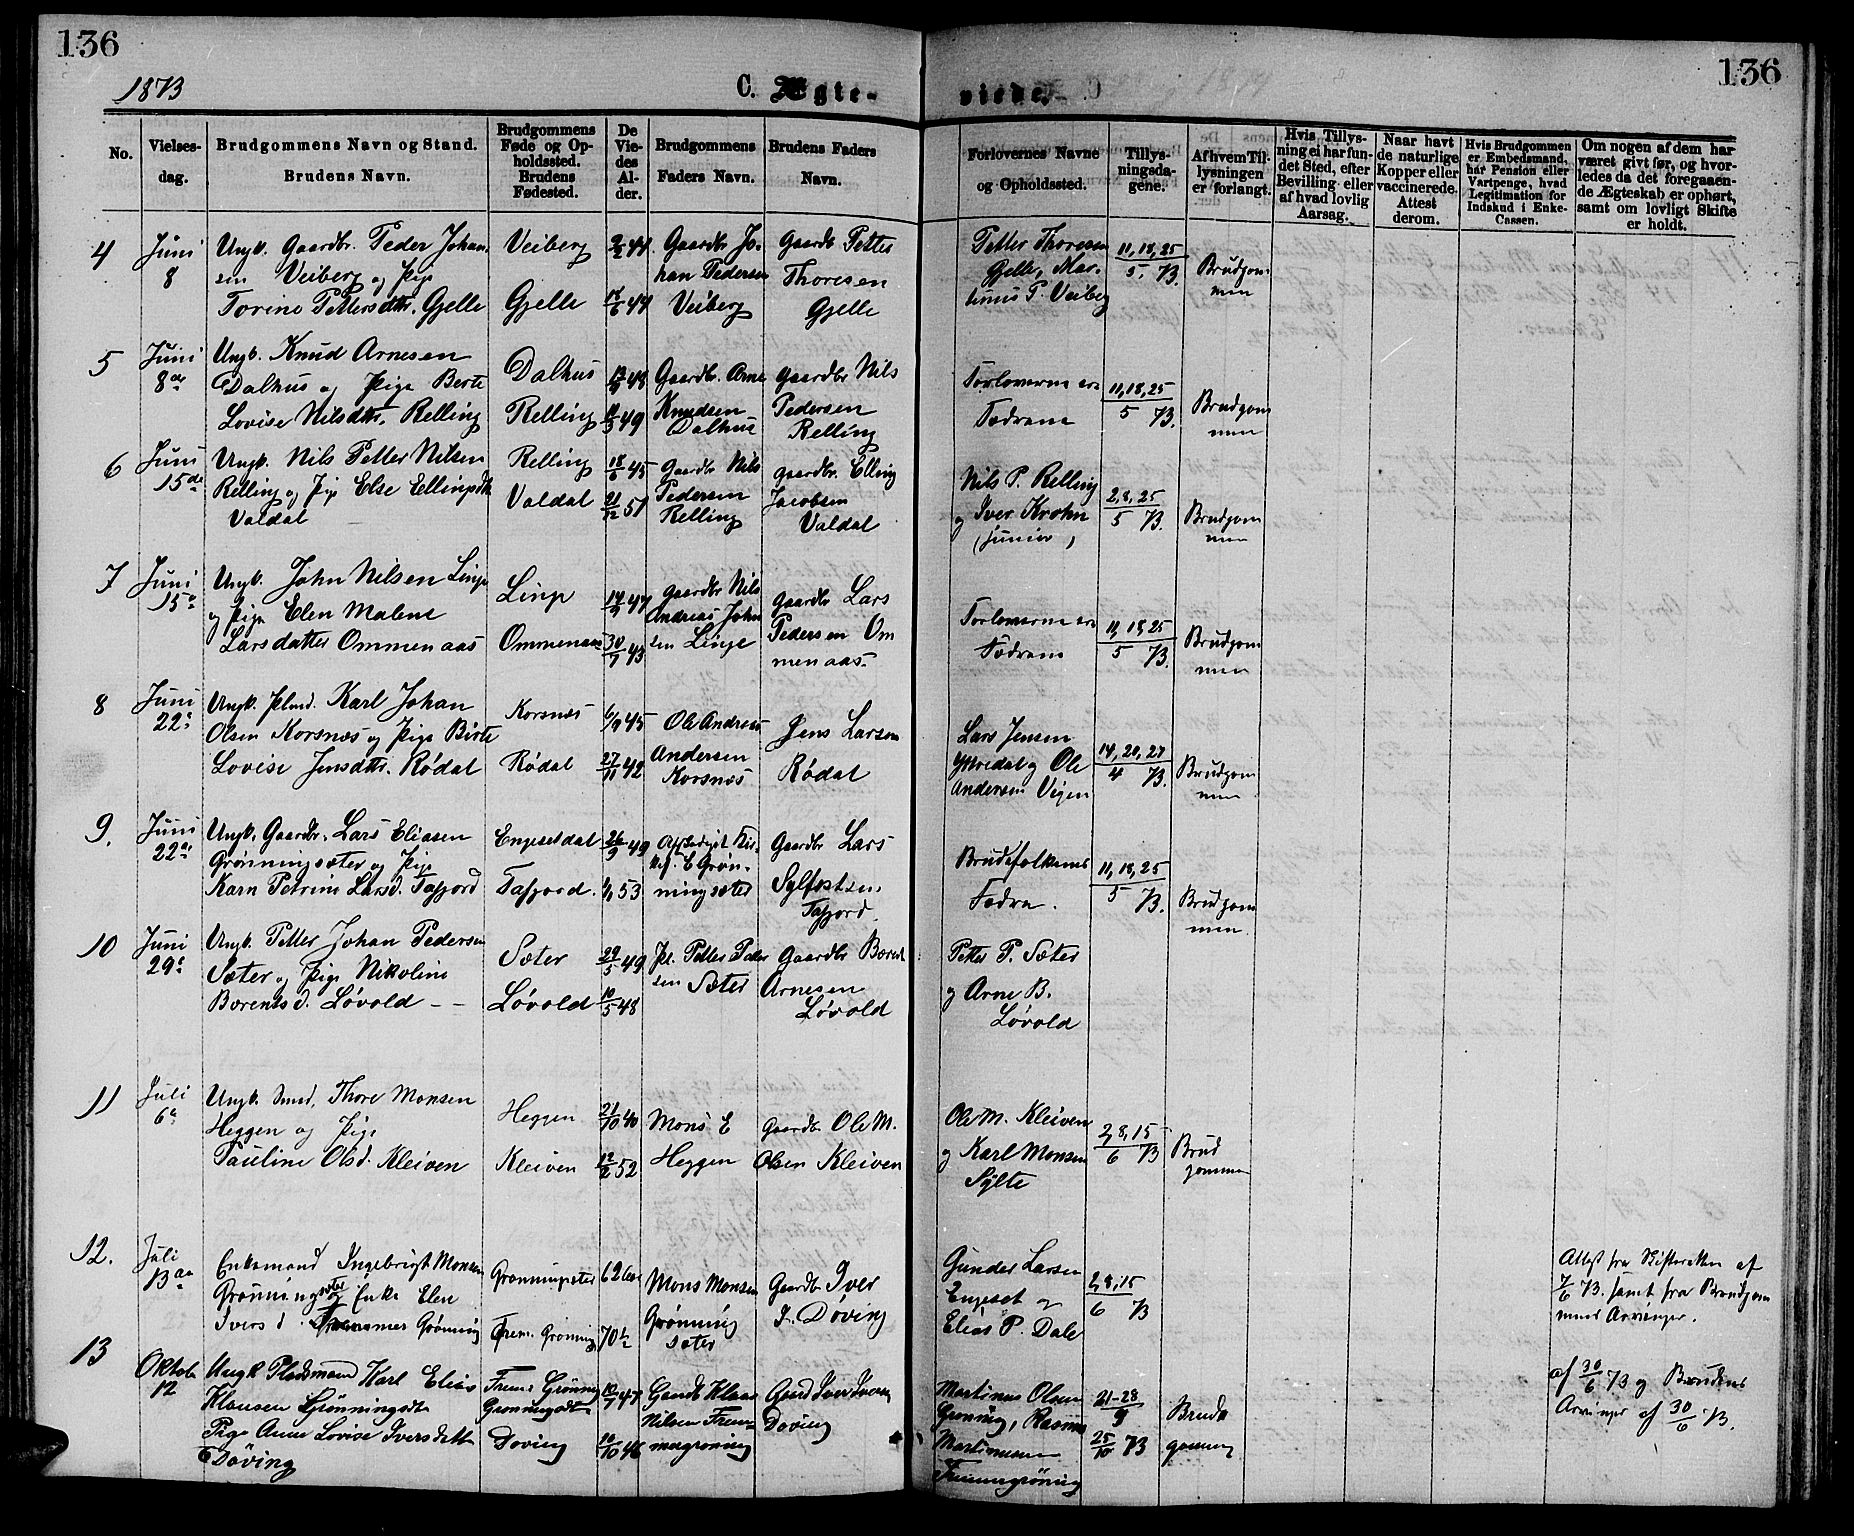 136
136
1873
C. Ægte-
viede.
No.
Vielses-
dag.
Brudgommens Navn og Stand.
Brudens Navn.
Brudgommens
Føde og Op-
holdssted.
Brudens
Fødested.
De
Vie-
des
Al-
der.
Brudgommens
Faders Navn.
Brudens Faders
Navn.
Forlovernes Navne
og Opholdssted.
Tillys-
ningsda-
gene.
Af hvem Til-
lysningen
er forlangt.
Hvis Tillys-
ning ei har fun-
det Sted, efter
Bevilling eller
af hvad lovlig
Aarsag.
Naar havt
de naturlige
Kopper eller
vaccinerede.
Attest
derom.
Hvis Brudgommen
er Embedsmand,
har Pension eller
Vartpenge, hvad
Legitimation for
Indskud i Enke-
Cassen.
Om nogen af dem har
været givt før, og hvor-
ledes da det foregaaen-
de Ægteskab er ophørt,
samt om lovligt Skifte
er holdt.
4
Juni
8
Ungk. Gaardbr. Peder Johan
sen Veiberg og Pige
Torine Pettersdttr. Gjelle
Veiberg
Gjelle
44
44
Gaardbr Jo-
han Pedersen
Veiberg
Gaardb. Petter
Thoresen
Gjelle
Petter Thoresen
Gjelle, Mar-
tinus P. Veiberg
11, 18, 25
5. 73.
Brudgom
men
5
Juni
8de
Ungk. Knud Arnesen
Dalhus og Pige Berte
Lovise Nilsdttr. Relling
Dalhus
Relling
48
49
Gaardbr. Arne
Knudsen
Dalhus
Gaardbr Nils
Pedersen
Relling
Forloverne ere
Fædrene
11, 18, 25
5 73.
Brudgom
men
6
Juni
15de
Ungk. Nils Petter Nilsen
Relling og Pige Else Ellingsdtr
Valdal
Relling
Valdal
18/6 45
21/12 51
Gaardbr Nils
Pedersen
Relling
gaardbr. Elling
Jacobsen
Valdal
Nils P. Relling
og Iver Krohn
(junior)
2, 8, 25
5 73.
Brudgom
men
7
Juni
15de
Ungk. John Nilsen Linge
og Pige Elen Malene
Larsdatter Ommenaas
Linge
Ommenaas
47
30/7 43
gaardbr Nils
Andreas John
sen Linge
gaardbr Lars
Pedersen Om
menaas.
Forloverne ere
Fædrene
11, 18, 25
5 73.
Brudgom
men
8
Juni
22de
Ungk. Plmd. Karl Johan
Olsen Korsnæs og Pige Birte
Lovise Jensdttr. Rødal
Korsnæs
Rødal
6/9 45
27/11 42
Ole Andreas
Andersen
Korsnæs
Jens Larsen
Rødal
Lars Jensen
og Ole
Andersen Vigen
14, 20, 27
4 73.
Brudgom
men
9.
Juni
22de
Ungk. Gaardbr. Lars Eliasen
Grønningsæter og Pige
Karn Petrine Larsd. Tafjord
Engesetdal
Tafjord.
26/9 49
53
E Grøn-
ningsæter
Gaardbr Lars
Sylfestsen
Tafjord
Brudefolkenes
Fædre.
11, 18, 25
5 73.
Brudgom
men.
10
Juni
29de
Ungk. Petter Johan Pedersen
Sæter og Pige Nikoline
Berentsd. Løvold
Sæter
Løvold
29/5 49
10/5 48
Pl. Petter Peder
sen Sæter
Gaardbr Berent
Arnesen
Løvold
Petter P. Sæter
og Arne B.
Løvold
11
Juli
6te
Ungk. Smed. Thore Monsen
Heggen og Pige
Pauline Olsd. Kleiven
Heggen
Kleiven
21/10 40
12/2 52
Mons E
Heggen
Gaardbr Ole M.
Olsen Kleiven
Ole M. Kleiven
og Karl Monsen
Sylte
2, 8, 15
6 73
Brud
gommen
12.
Juli
13de
Enkemand Ingebrigt Monsen
Grønningsæter og Enke Elen
Iversd. Fremmer Grønning
Grønningsæter
Frem. Grønning
62
70½
Mons Monsen
Grønning
sæter
Gaardbr Iver
I. Døving
Gunder Larsen
Engeset og
Elias P. Dale
2, 8, 15
6 73
Attest fra Skifteretten af
7/6 73. samt fra Brudgom
mens Arvinger.
13
Oktober
12
Ungk Pladsmand Karl Elias
Klausen Grønningsætr
Pige Anne Lovise Iversdatter
Døving
Frem. Grønning
Grønningsætr
Døving
47
46
Gaardbr Klaus
Nilsen Frem-
mergrøning
Gaardbr Iver Iversen
Døving
Martinus Olsen
Grøning, Rasmus
Martinusen
Fremmergrøning
21-28
9
25/10 73
Brud
gommen
af 30/6 73 og Brudens
Arvinger af 30/6 73.